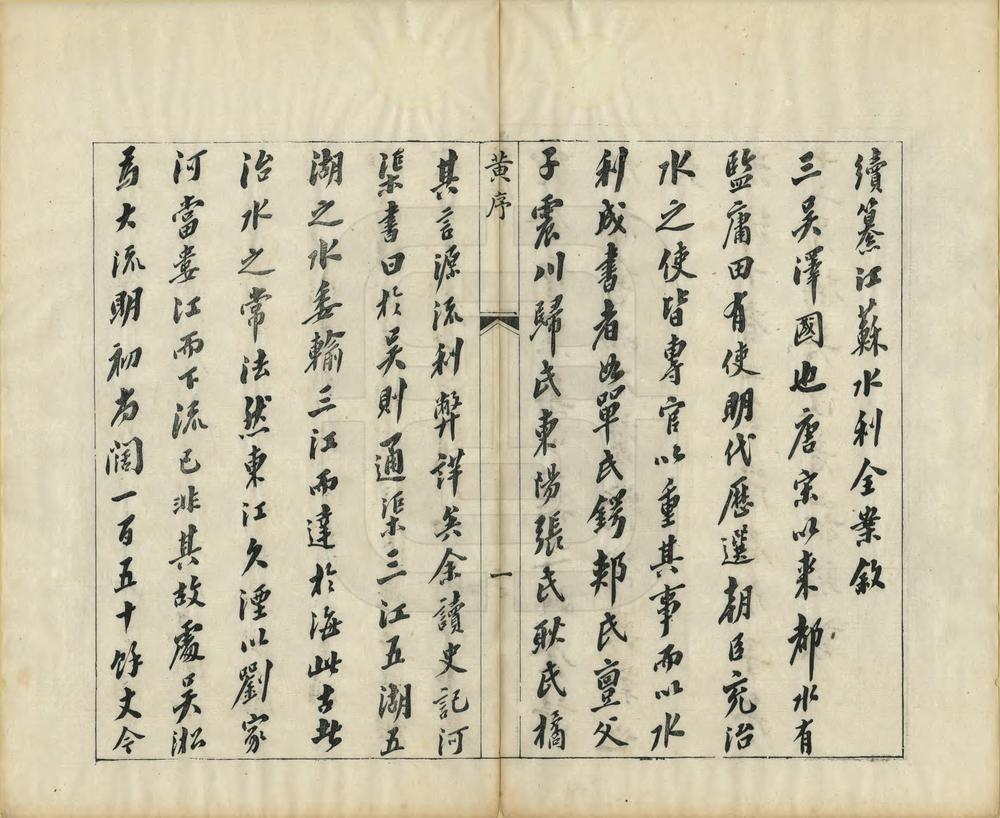 續纂江蘇水利全案敘
三吳澤國也唐宋以來都水有
監庸田有使明代歷選朝臣充治
水之使皆專官以重其事而以水
利成書者如單氏鍔郟氏亶父
子震川歸氏東陽張氏耿氏橘
黄序
一
其言源流利弊詳矣余讀史記河
渠書曰於吳則通渠三江五湖五
湖之水委輸三江而達於海此古
治水之常法然東江久湮以劉家
河當婁江而下流已非其故處吳淞
為大流明初尚闊一百五十餘丈今